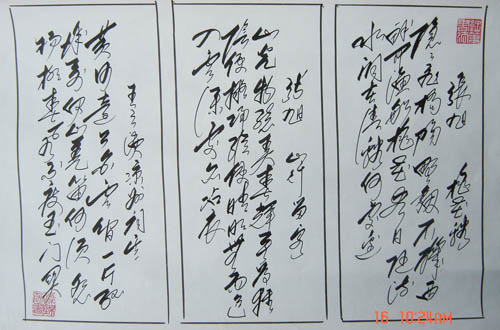 张旭 桃花溪
隐隐飞桥隔野烟石矶西
畔问渔船桃花尽日随流
水洞在清溪何处边
张旭 山行留客
山光物态弄春辉莫为轻
阴便拟归纵使晴明无雨色
入云深处亦沾衣
王之涣凉州词
黄河远上白云间一片孤
城万仞山羌笛何须怨
杨柳春风不度玉门关
16 10:24AM